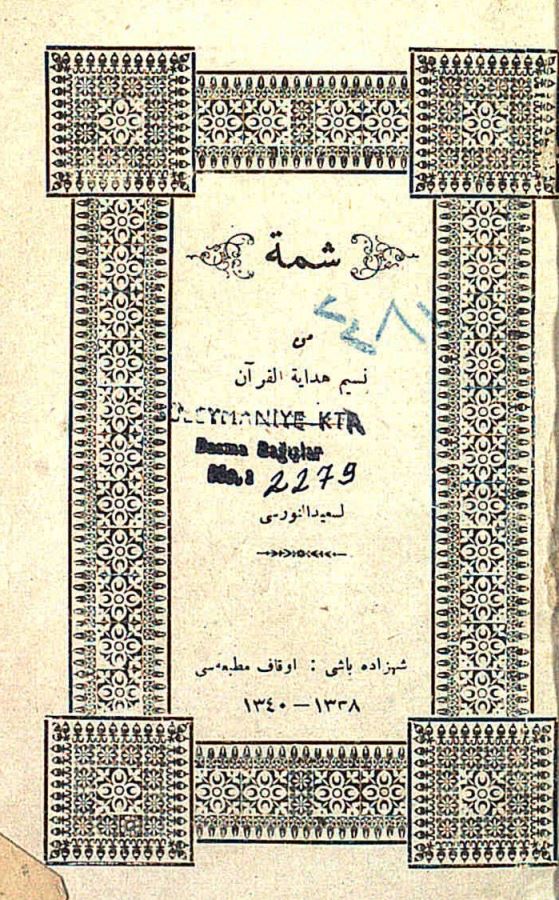 شمة
من
نسيم هداية القرآن
SÜLEYMANİYE KTP.
Basma Bağışlar
No.: 2279
لسعيد النورسى
شهزاده باشى : اوقاف مطبعه‌سى
١٣٣٨ — ١٣٤٠